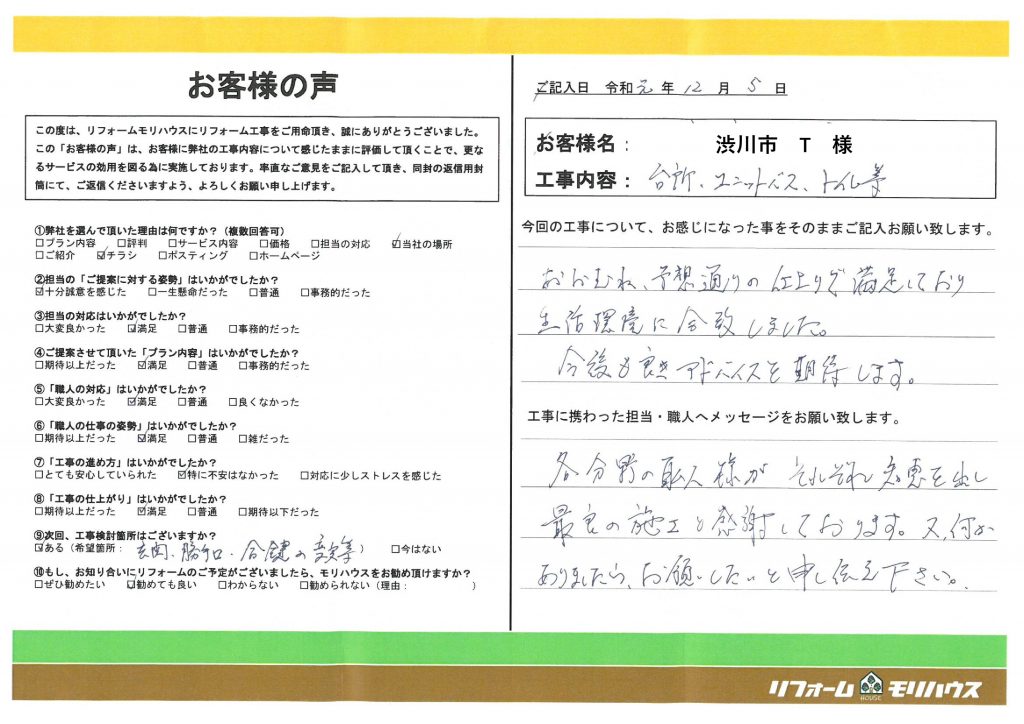 お客様の声
この度は、リフォームモリハウスにリフォーム工事をご用命頂き、誠にありがとうございました。
この「お客様の声」は、お客様に弊社の工事内容について感じたままに評価して頂くことで、更な
るサービスの効用を図る為に実施しております。率直なご意見をご記入して頂き、同封の返信用封
筒にて、ご返信くださいますよう、よろしくお願い申し上げます。
①弊社を選んで頂いた理由は何ですか？（複数回答可）
□プラン内容 □評判 □サービス内容 □価格 □担当の対応 ☑当社の場所
□ご紹介 ☑チラシ □ポスティング □ホームページ
②担当の「ご提案に対する姿勢」はいかがでしたか？
☑十分誠意を感じた □一生懸命だった □普通 □事務的だった
③担当の対応はいかがでしたか？
□大変良かった ☑満足 □普通 □事務的だった
④ご提案させて頂いた「プラン内容」はいかがでしたか？
□期待以上だった ☑満足 □普通 □事務的だった
⑤「職人の対応」はいかがでしたか？
□大変良かった ☑満足 □普通 □良くなかった
⑥「職人の仕事の姿勢」はいかがでしたか？
□期待以上だった ☑満足 □普通 □雑だった
⑦「工事の進め方」はいかがでしたか？
□とても安心していられた ☑特に不安はなかった □対応に少しストレスを感じた
⑧「工事の仕上がり」はいかがでしたか？
□期待以上だった ☑満足 □普通 □期待以下だった
⑨次回、工事検討箇所はございますか？
☑ある（希望箇所：玄関、勝手口、合鍵の変更等） □今はない
⑩もし、お知り合いにリフォームのご予定がございましたら、モリハウスをお勧め頂けますか？
□ぜひ勧めたい ☑勧めても良い □わからない □勧められない（理由： ）
ご記入日 令和元年12月5日
お客様名： 渋川市 T 様
工事内容：台所、ユニットバス、トイレ等
今回の工事について、お感じになった事をそのままご記入お願い致します。
おおむね、予想通りの仕上りで満足しており
生活環境に合致しました。
今後も良きアドバイスを期待します。
工事に携わった担当・職人へメッセージをお願い致します。
各分野の職人様がそれぞれ知恵を出し
最良の施工と感謝しております。又、何か
ありましたら、お願いしたいと申し伝え下さい。
リフォーム モリハウス
HOUSE